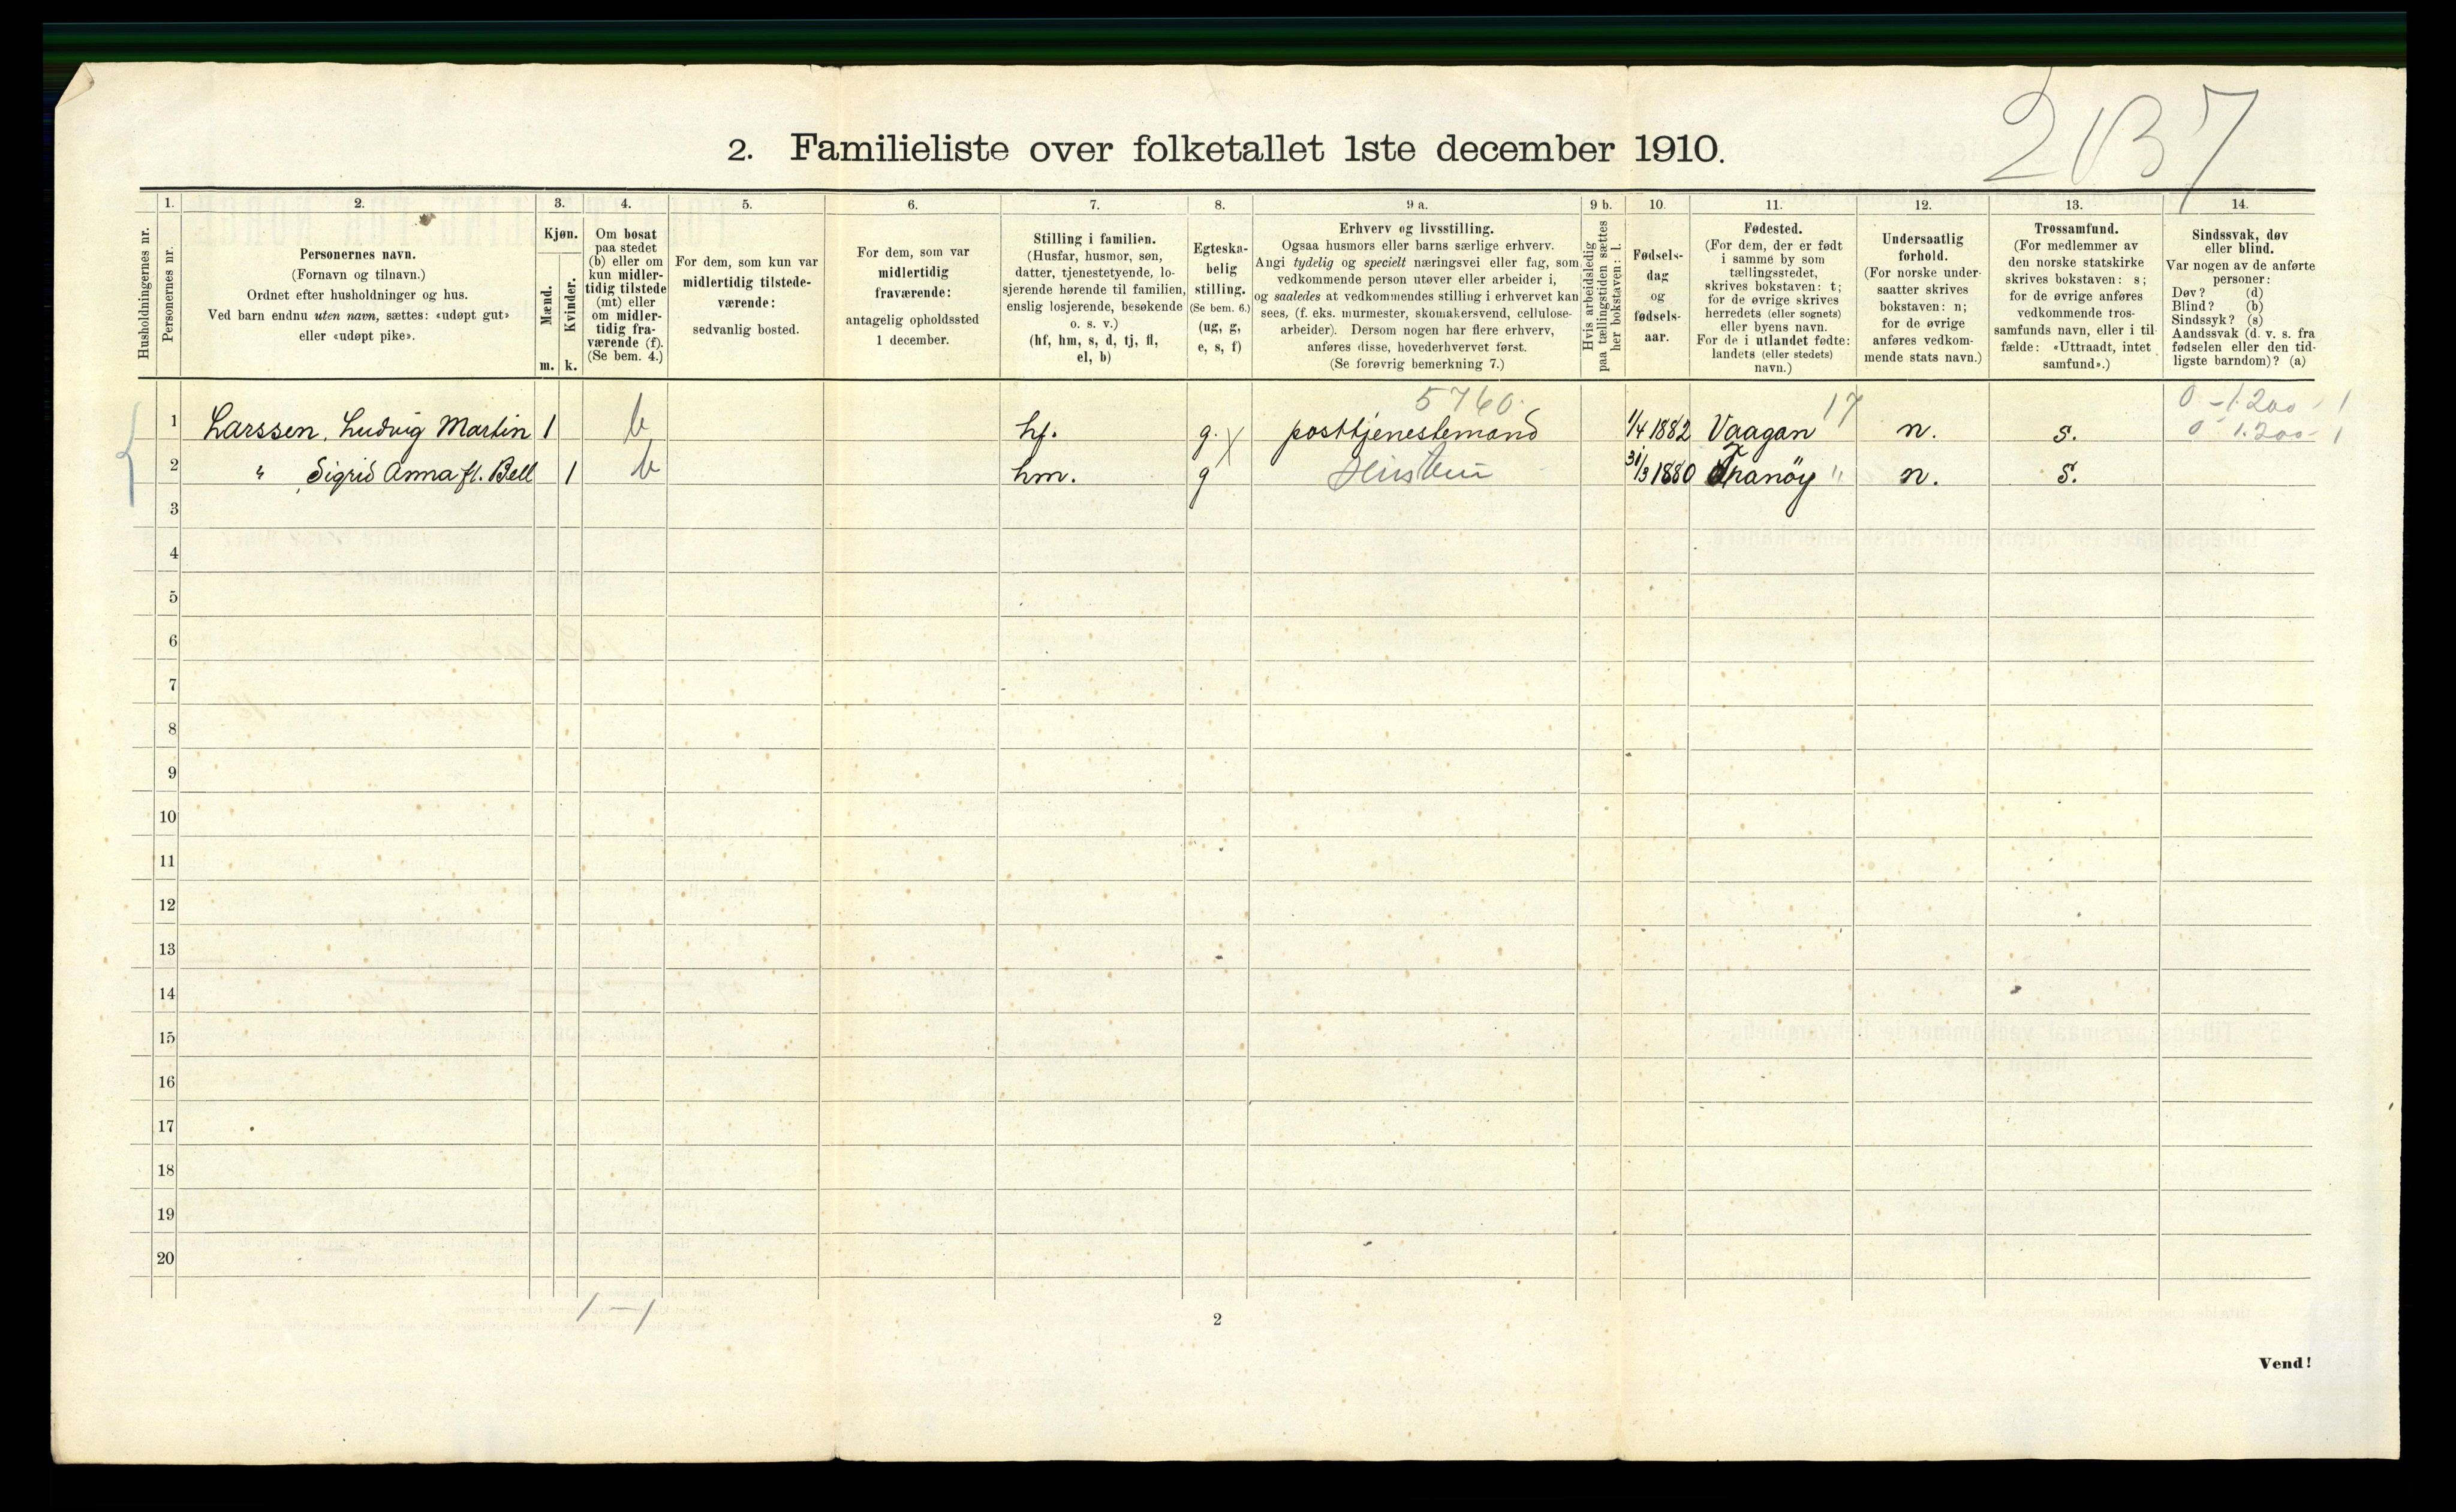 237
2. Familieliste over folketallet 1ste december 1910.
Husholdningernes nr.
1.
Personernes nr.
2.
Personernes navn.
(Fornavn og tilnavn.)
Ordnet efter husholdninger og hus.
Ved barn endnu uten navn, sættes: «udøpt gut»
eller «udøpt pike».
3.
Kjøn.
Mænd.
m.
Kvinder.
k.
4.
Om bosat
paa stedet
(b) eller om
kun midler-
tidig tilstede
(mt) eller
om midler-
tidig fra-
værende (f).
(Se bem. 4.)
5.
For dem, som kun var
midlertidig tilstede-
værende:
sedvanlig bosted.
6.
For dem, som var
midlertidig
fraværende:
antagelig opholdssted
1 december.
7.
Stilling i familien.
(Husfar, husmor, søn,
datter, tjenestetyende, lo-
sjerende hørende til familien,
enslig losjerende, besøkende
o. s. v.)
(hf, hm, s, d, tj, fl,
el, b)
8.
Egteska-
belig
stilling.
(Se bem. 6.)
(ug, g,
e, s, f)
9 a.
Erhverv og livsstilling.
Ogsaa husmors eller barns særlige erhverv.
Angi tydelig og specielt næringsvei eller fag, som
vedkommende person utøver eller arbeider i,
og saaledes at vedkommendes stilling i erhvervet kan
sees, (f. eks. murmester, skomakersvend, cellulose-
arbeider). Dersom nogen har flere erhverv,
anføres disse, hovederhvervet først.
(Se forøvrig bemerkning 7.)
9 b.
Hvis arbeidsledig
paa tællingstiden sættes
her bokstaven: l.
10.
Fødsels-
dag
og
fødsels-
aar.
11.
Fødested.
(For dem, der er født
i samme by som
tællingsstedet,
skrives bokstaven: t;
for de øvrige skrives
herredets (eller sognets)
eller byens navn.
For de i utlandet fødte:
landets (eller stedets)
navn.)
12.
Undersaatlig
forhold.
(For norske under-
saatter skrives
bokstaven: n;
for de øvrige
anføres vedkom-
mende stats navn.)
13.
Trossamfund.
(For medlemmer av
den norske statskirke
skrives bokstaven: s;
for de øvrige anføres
vedkommende tros-
samfunds navn, eller i til-
fælde: «Uttraadt, intet
samfund».)
14.
Sindssvak, døv
eller blind.
Var nogen av de anførte
personer:
Døv? (d)
Blind? (b)
Sindssyk? (s)
Aandssvak (d. v. s. fra
fødselen eller den tid-
ligste barndom)? (a)
5760. 17 0 - 1.200 - 1
1 Larssen, Ludvig Martin 1 b hf. g. posttjenestemand 1/4 1882 Vaagan n. s. 0 - 1.200 - 1
2 " Sigrid Anna f. Bell 1 b hm. g 31/3 1880 Tranöy " n. s.
3
4
5
6
7
8
9
10
11
12
13
14
15
16
17
18
19
20
1 — 1
2
Vend!